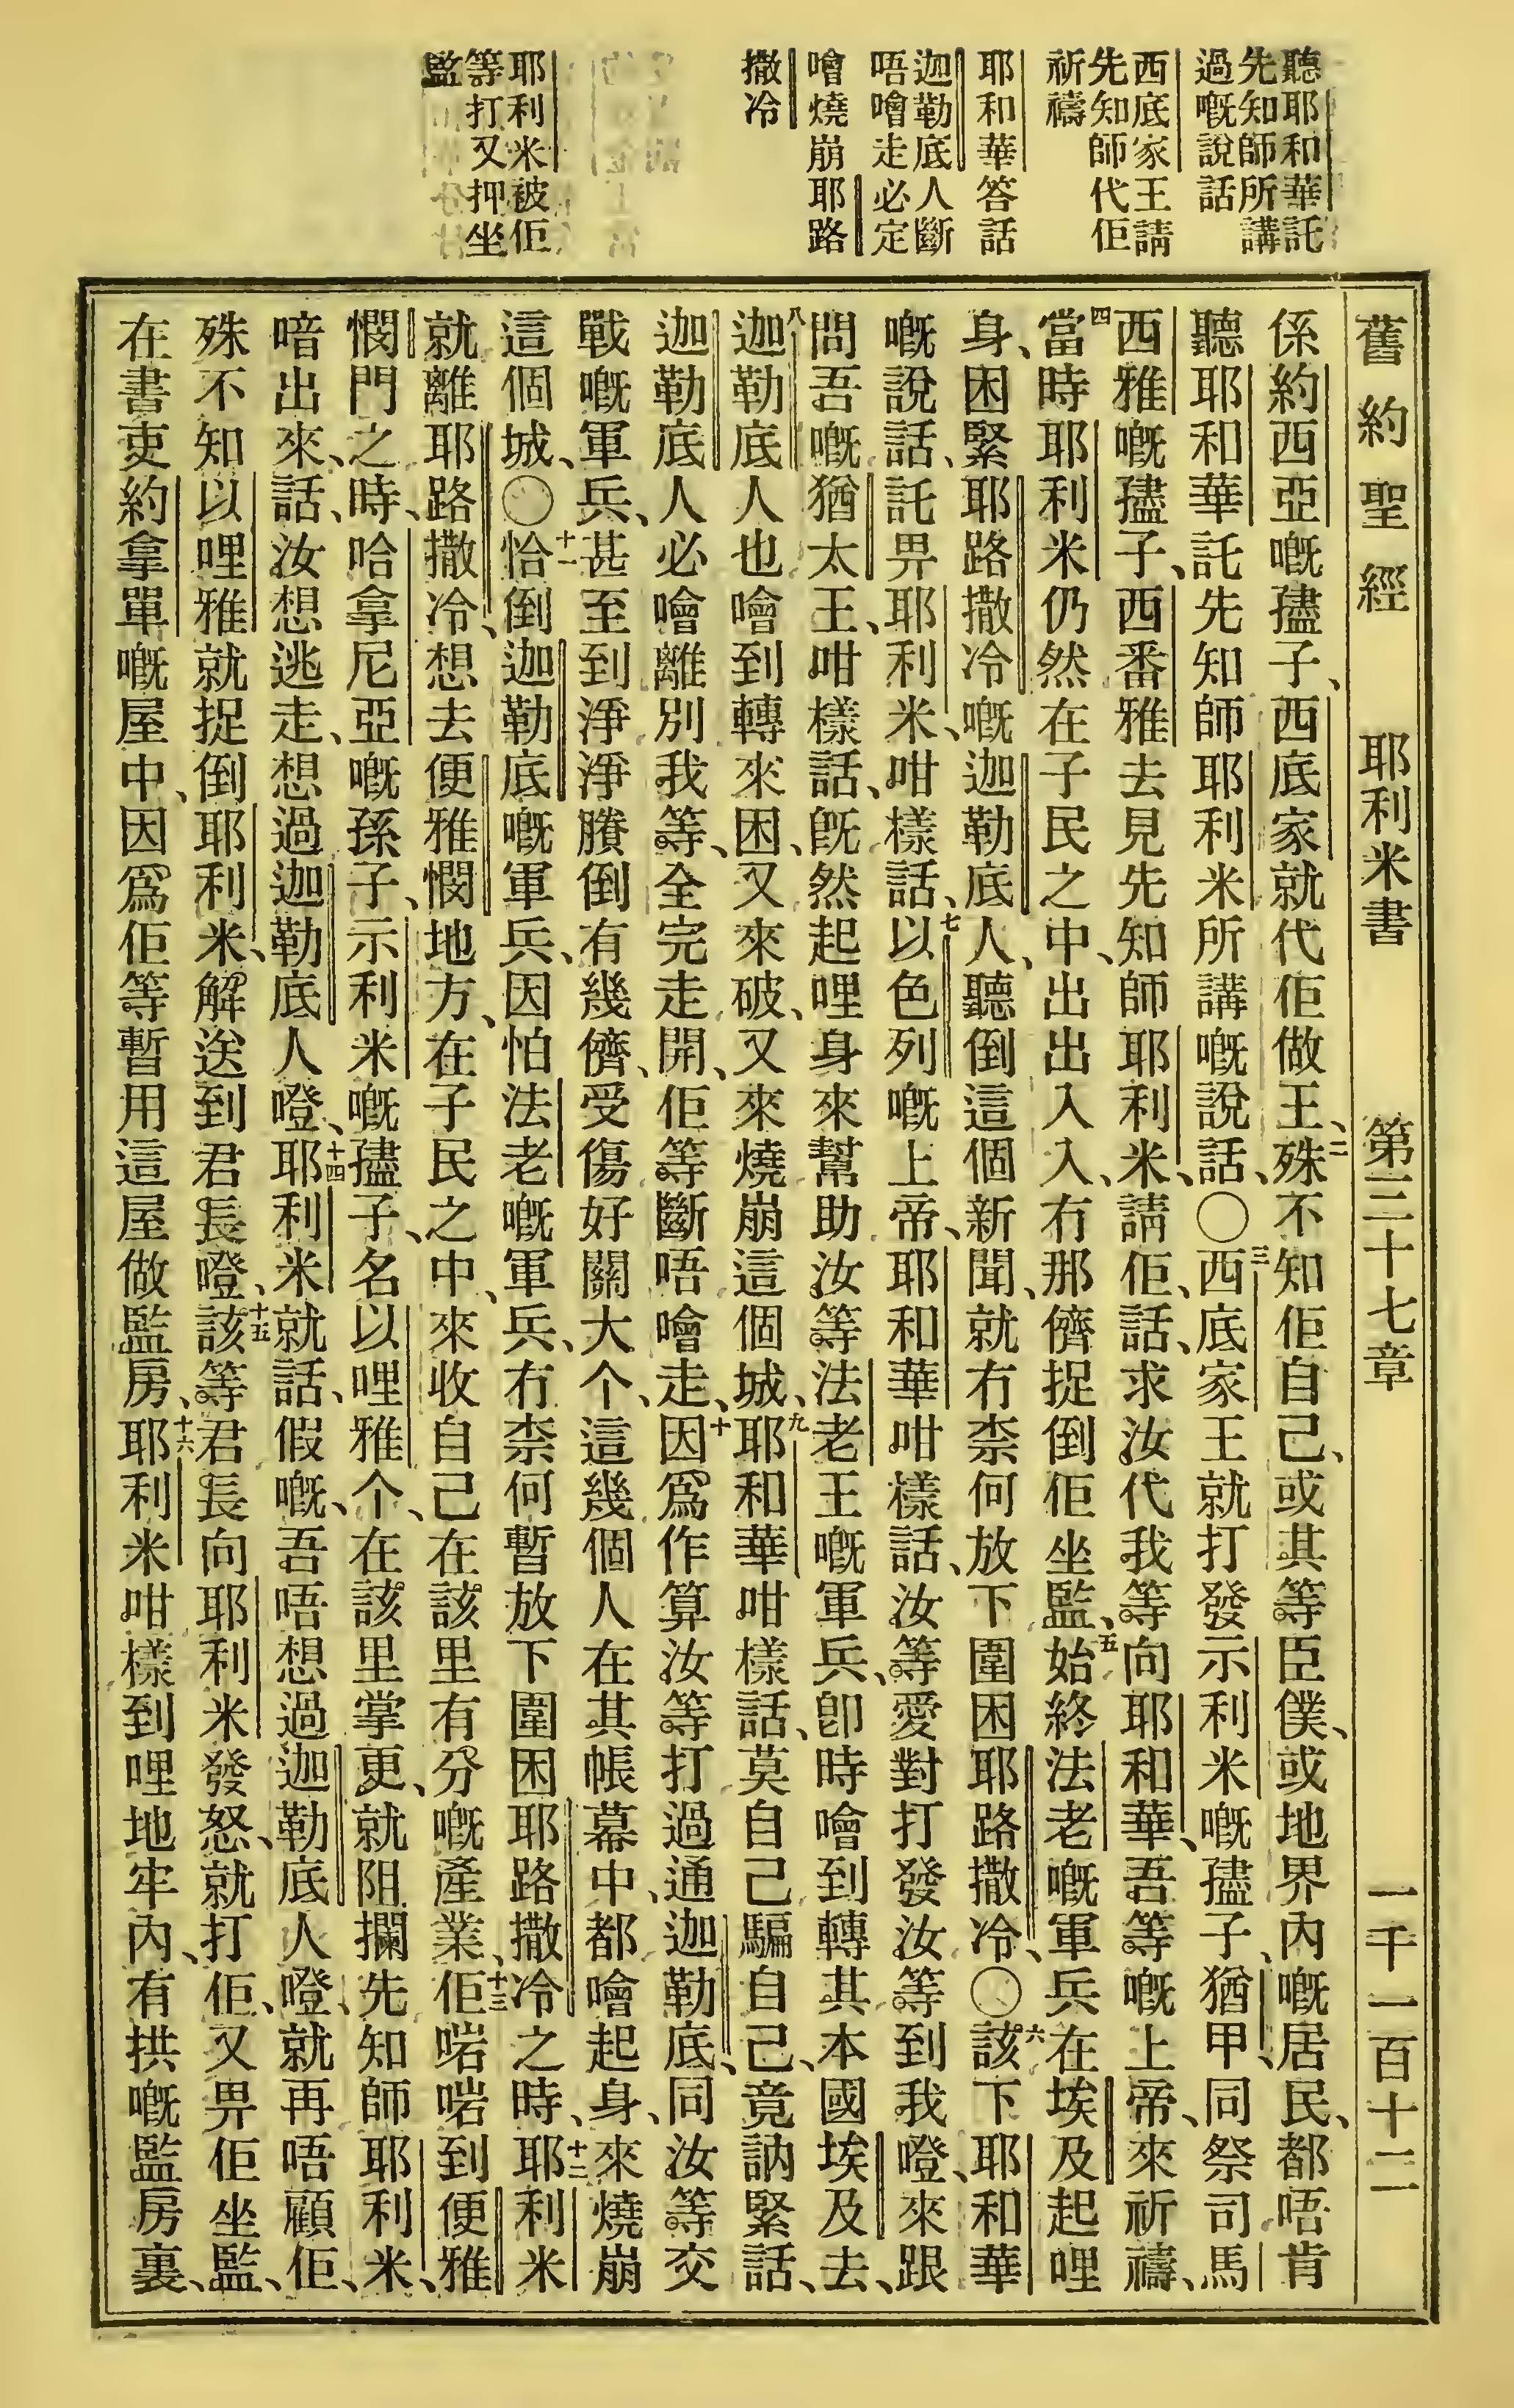 聽耶和華託
先知師所講
過嘅說話
西底家王請
先知師代佢
祈禱
耶和華答話
迦勒底人斷
唔噲走必定
噲燒崩耶路
撒冷
耶利米被佢
等打又押坐
監
舊約聖經 耶利米書 第三十七章 一千一百十二
係約西亞嘅㜽子、西底家就代佢做王、二殊不知佢自己、或其等臣僕、或地界內嘅居民、都唔肯
聽耶和華託先知師耶利米所講嘅說話、〇三西底家王就打發示利米嘅㜽子、猶甲、同祭司馬
西雅嘅㜽子、西番雅去見先知師耶利米、請佢、話、求汝代我等向耶和華、吾等嘅上帝、來祈禱、
四當時耶利米仍然在子民之中、出出入入、冇那儕捉倒佢坐監、五始終法老嘅軍兵在埃及起哩
身、困緊耶路撒冷嘅迦勒底人、聽倒這個新聞、就冇柰何放下圍困耶路撒冷、〇六該下耶和華
嘅說話、託畀耶利米、咁樣話、七以色列嘅上帝、耶和華咁樣話、汝等愛對打發汝等到我噔、來跟
問吾嘅猶太王、咁樣話、旣然起哩身來幫助汝等法老王嘅軍兵、卽時噲到轉其本國埃及去、
八迦勒底人也噲到轉來困、又來破、又來燒崩這個城、九耶和華咁樣話、莫自己騙自己、竟訥緊話、
迦勒底人必噲離別我等、全完走開、佢等斷唔噲走、十因爲作算汝等打過通迦勒底、同汝等交
戰嘅軍兵、甚至到淨淨賸倒有幾儕、受傷好關大个、這幾個人在其帳幕中、都噲起身、來燒崩
這個城、〇十一恰倒迦勒底嘅軍兵、因怕法老嘅軍兵、冇柰何暫放下圍困耶路撒冷之時、十二耶利米
就離耶路撒冷、想去便雅憫地方、在子民之中、來收自己在該里有分嘅產業、十三佢啱啱到便雅
憫門之時、哈拿尼亞嘅孫子、示利米嘅㜽子、名以哩雅个、在該里掌更、就阻攔先知師耶利米、
喑出來、話、汝想逃走、想過迦勒底人噔、十四耶利米就話、假嘅、吾唔想過迦勒底人噔、就再唔顧佢、
殊不知以哩雅就捉倒耶利米、解送到君長噔、十五該等君長向耶利米發怒、就打佢、又畀佢坐監、
在書吏約拿單嘅屋中、因爲佢等暫用這屋做監房、十六耶利米咁樣到哩地牢內、有拱嘅監房裏、